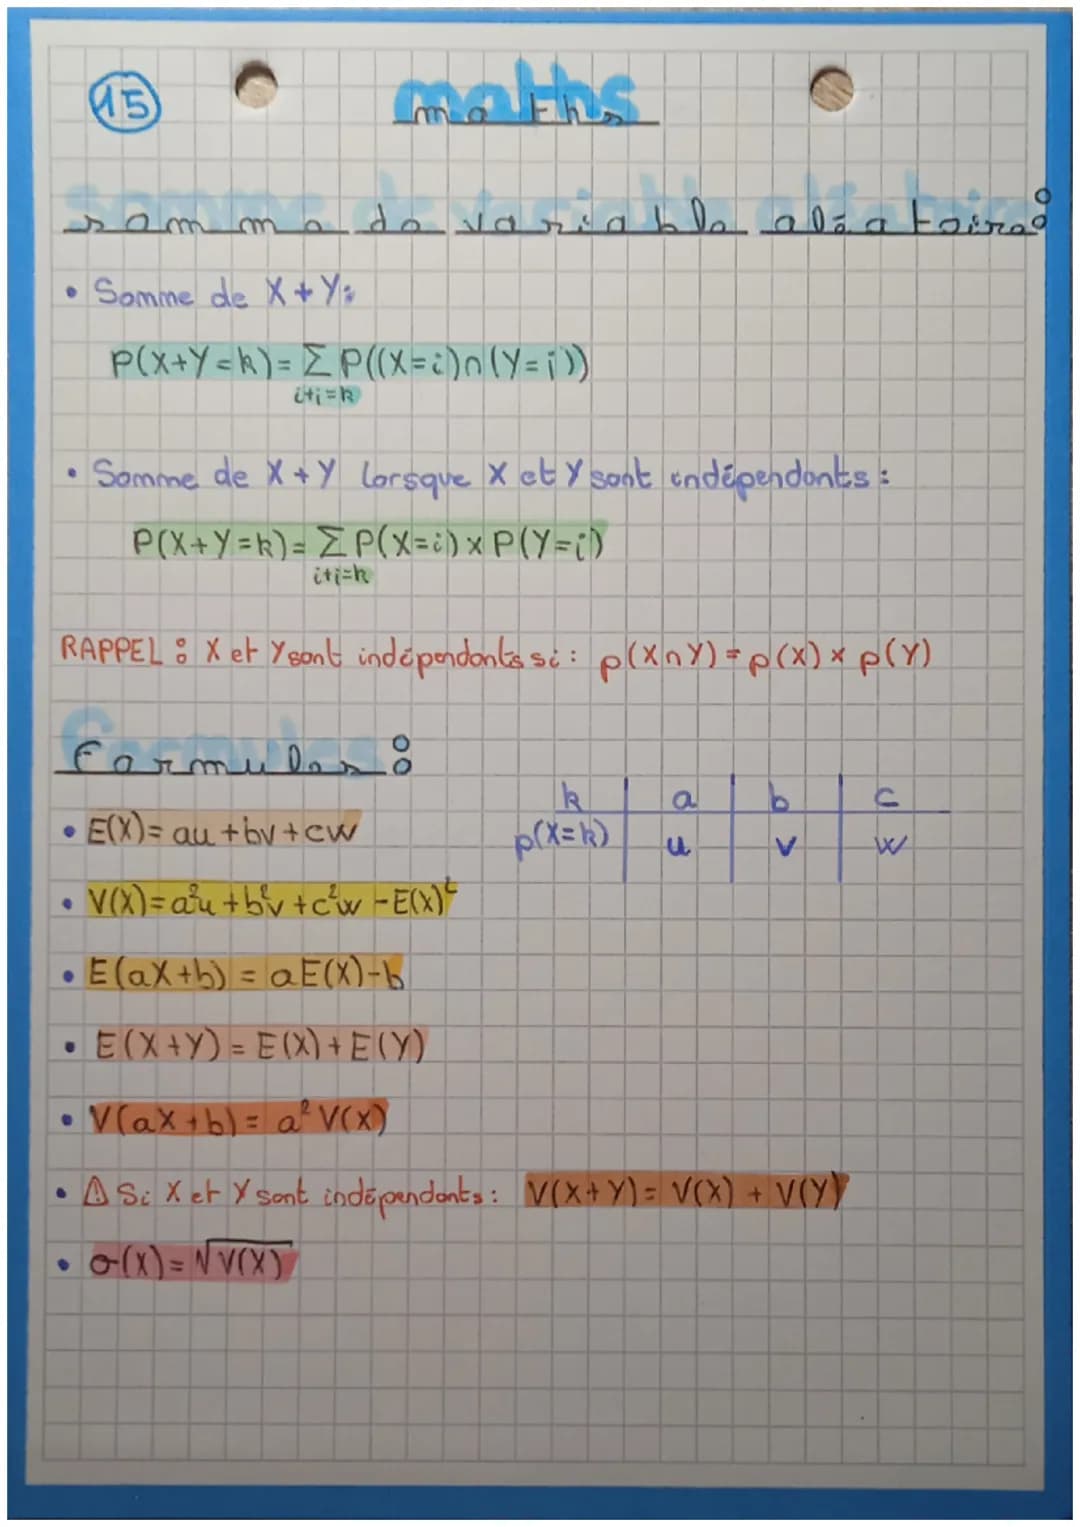 15
maths
somme de variable aléatoire :
• Somme de X + Y :
P(X+Y=k) = Σ P((X=i)∩(Y=j))
i+j=k
• Somme de X + Y lorsque X et Y sont indépendants :
P(X+Y=k) = Σ P(X=i) × P(Y=j)
i+j=k
RAPPEL : X et Y sont indépendants si : p(X∩Y) = p(X) × p(Y)
Formules :
k | a | b | c
• E(X) = au + bv + cw
p(X=k) | u | v | w
• V(X) = a²u + b²v + c²w - E(X)²
• E(aX+b) = aE(X)-b
• E(X+Y) = E(X) + E(Y)
• V(aX+b) = a² V(X)
• ⚠ Si X et Y sont indépendants : V(X+Y) = V(X) + V(Y)
• σ(X) = √V(X)